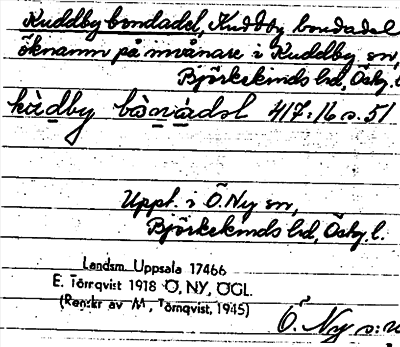 Kuddby bondadel, Kuddby bondadel
öknamn på invånare i Kuddby sn,
Björkekinds hd, Östg. l.
kùdby bònadsl 417:16 s. 51
Uppt. i Ö. Ny sn,
Björkekinds hd, Östg. l.
Landsm. Uppsala 17466
E. Törnqvist 1918 Ö. NY, ÖGL.
(Renskr av M. Törnqvist, 1945)
Ö. Ny s:n